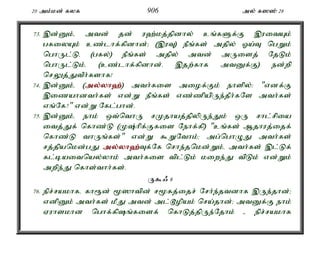 20 அம்மன் கலக 906 அல் கஸஸ் 28
73. இன்னும், அவன் தன் ரஹ்மத்தினால் உங்களுக்கு இரவையும்
பகலையும் உண்டாக்கினான்; (இரவு) நீங்கள் அதில் ஓய்வு பெறும்
பொருட்டு, (பகல்) நீங்கள் அதில் அவன் அருளைத் தேடும்
பொருட்டும், (உண்டாக்கினான். இதற்காக அவனுக்கு) நன்றி
செலுத்துவீர்களாக!
74. இன்னும், (அல்லாஹ்) அவர்களை அழைக்கும் நாளில்: "எனக்கு
இணையானவர்கள் என்று நீங்கள் எண்ணியிருந்தீர்களே அவர்கள்
எங்கே?" என்று கேட்பான்.
75. இன்னும், நாம் ஒவ்வொரு சமுதாயத்திலிருந்தும் ஒரு சாட்சியை
வைத்துக் கொண்டு (முஷ்ரிக்குகளை நோக்கி) "உங்கள் ஆதாரத்தைக்
கொண்டு வாருங்கள்" என்று கூறுவோம்; அப்பொழுது அவர்கள்
சத்தியமென்பது அல்லாஹ்வுக்கே சொந்தமென்றும், அவர்கள் இட்டுக்
கட்டியவையெல்லாம் அவர்களை விட்டும் மறைந்து விடும் என்றும்
அறிந்து கொள்வார்கள்.
ருகூஃ 8
76. நிச்சயமாக, காரூன் மூஸாவின் சமூகத்தைச் சேர்ந்தவனாக இருந்தான்;
எனினும் அவர்கள் மீது அவன் அட்டூழியம் செய்தான்; அவனுக்கு நாம்
ஏராளமான பொக்கிஷங்களைக் கொடுத்திருந்தோம் - நிச்சயமாக